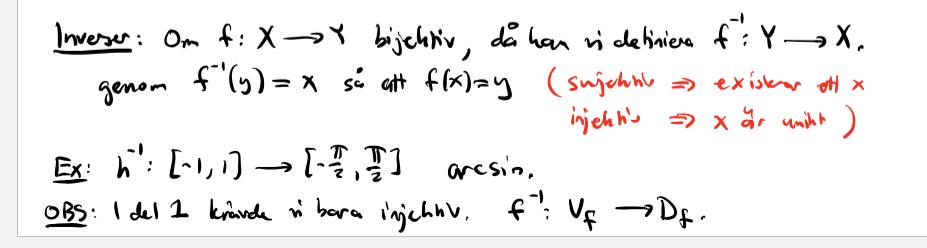 Inverser: Om f: X → Y bijektiv, då kan vi definiera f⁻¹: Y → X.
genom f⁻¹(y) = x så att f(x)=y (surjektiv ⇒ existerar ett x
injektiv ⇒ x är unikt)
Ex: h⁻¹: [-1, 1] → [-π/2, π/2] arcsin.
OBS: I del 1 krävde vi bara injektiv. f⁻¹: V_f → D_f.